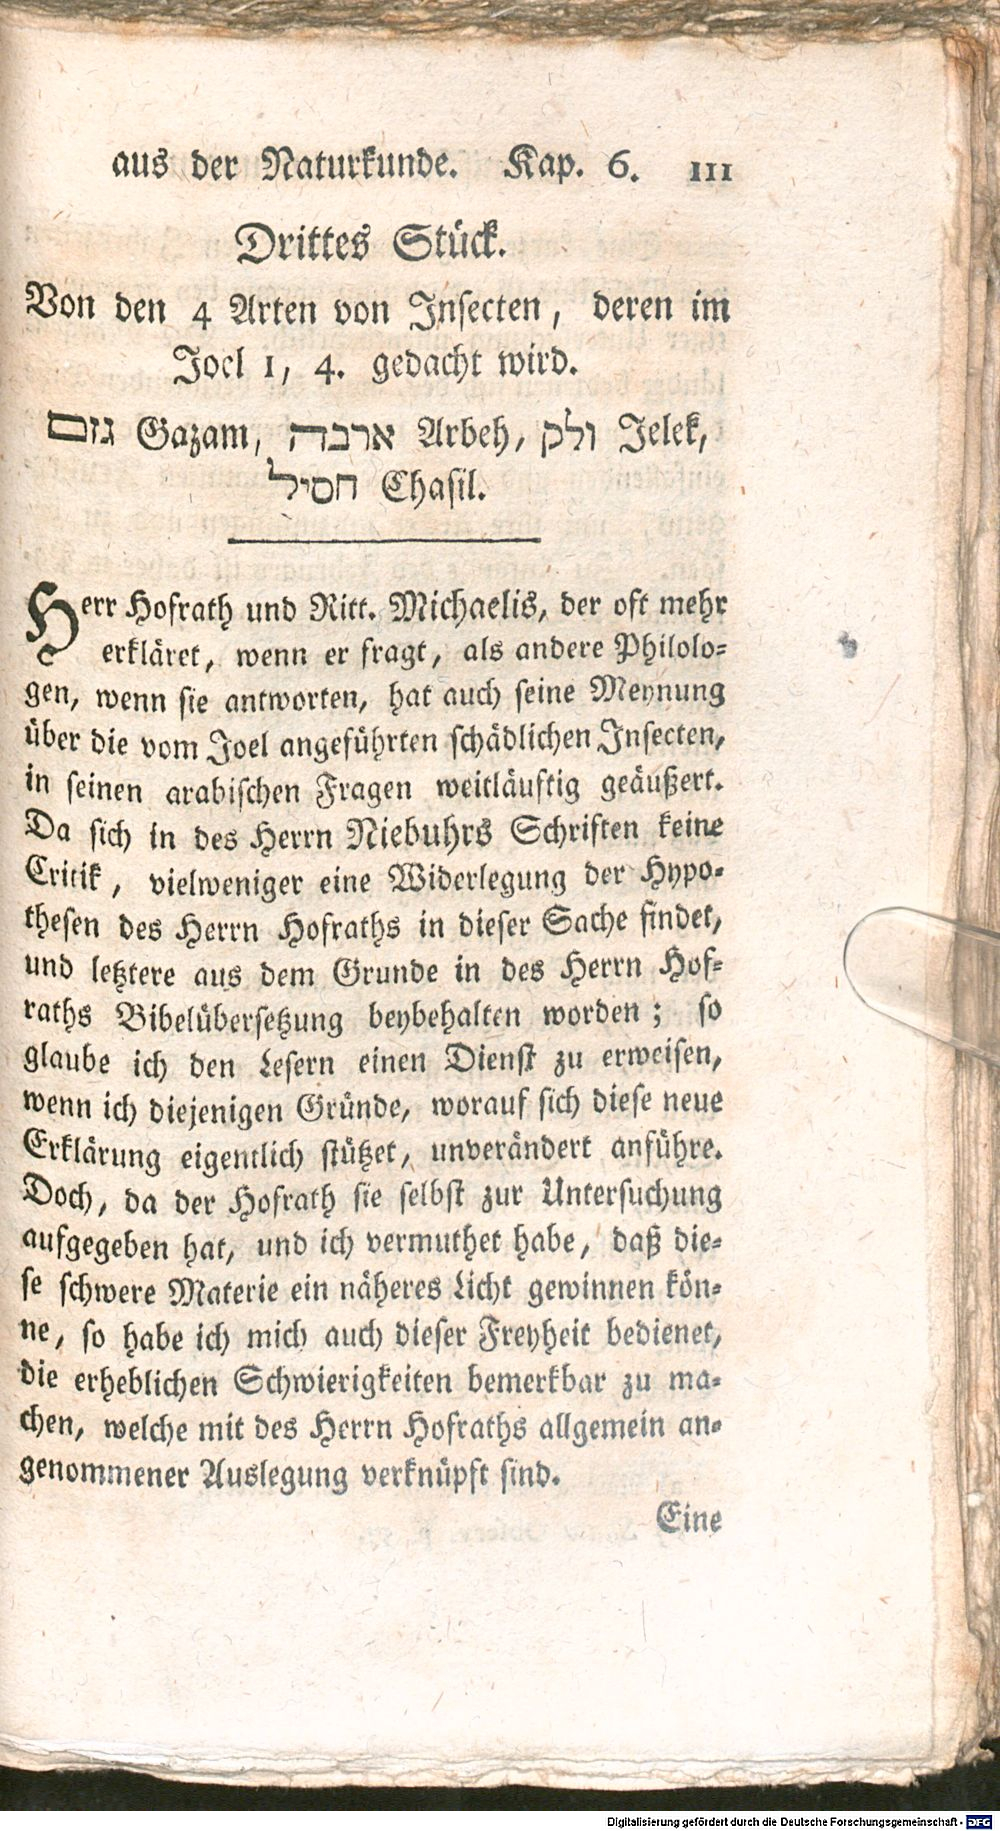 aus der Naturkunde. Kap. 6. 111
Drittes Stück.
Von den 4 Arten von Insecten, deren im
Joel 1, 4. gedacht wird.
גזם Gazam, ארבה Arbeh, ולק Jelek,
חסיל Chasil.
Herr Hofrath und Ritt. Michaelis, der oft mehr
erkläret, wenn er fragt, als andere Philolo-
gen, wenn sie antworten, hat auch seine Meynung
über die vom Joel angeführten schädlichen Insecten,
in seinen arabischen Fragen weitläuftig geäußert.
Da sich in des Herrn Niebuhrs Schriften keine
Critik, vielweniger eine Widerlegung der Hypo-
thesen des Herrn Hofraths in dieser Sache findet,
und letztere aus dem Grunde in des Herrn Hof-
raths Bibelübersetzung beybehalten worden; so
glaube ich den Lesern einen Dienst zu erweisen,
wenn ich diejenigen Gründe, worauf sich diese neue
Erklärung eigentlich stützet, unverändert anführe.
Doch, da der Hofrath sie selbst zur Untersuchung
aufgegeben hat, und ich vermuthet habe, daß die-
se schwere Materie ein näheres Licht gewinnen kön-
ne, so habe ich mich auch dieser Freyheit bedienet,
die erheblichen Schwierigkeiten bemerkbar zu ma-
chen, welche mit des Herrn Hofraths allgemein an-
genommener Auslegung verknüpft sind.
Eine
Digitalisierung gefördert durch die Deutsche Forschungsgemeinschaft - DFG